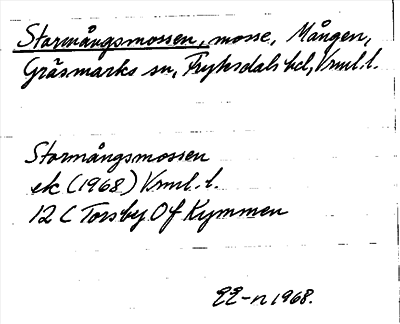 Stormångsmossen, mosse, Mången,
Gräsmarks sn, Fryksdals hd, Vrml. l.
Stormångsmossen
ek (1968) Vrml. l.
12 C Torsby 0 f Kymmen
1968.